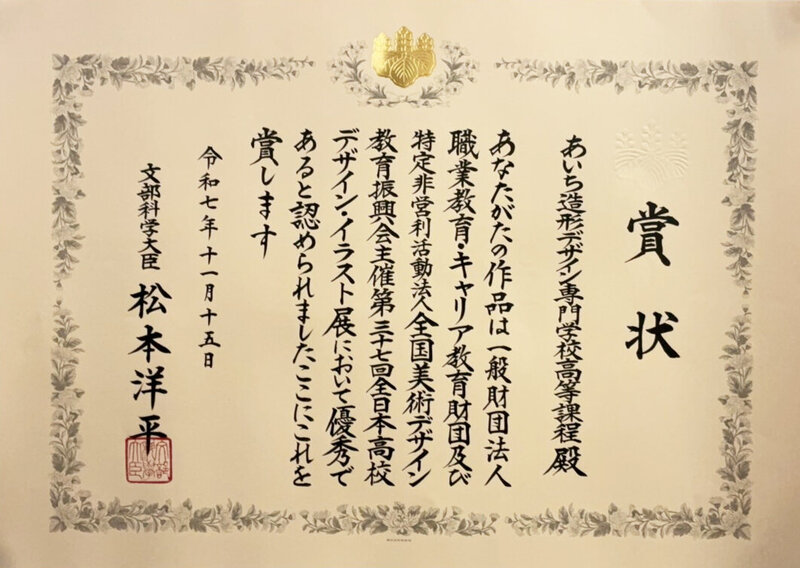 賞状
あいち造形デザイン専門学校高等課程 殿
あなたがたの作品は一般財団法人
職業教育・キャリア教育財団及び
特定非営利活動法人全国美術デザイン
教育振興会主催第三十七回全日本高校
デザイン・イラスト展において優秀で
あると認められましたここにこれを
賞します
令和七年十一月十五日
文部科学大臣 松本洋平